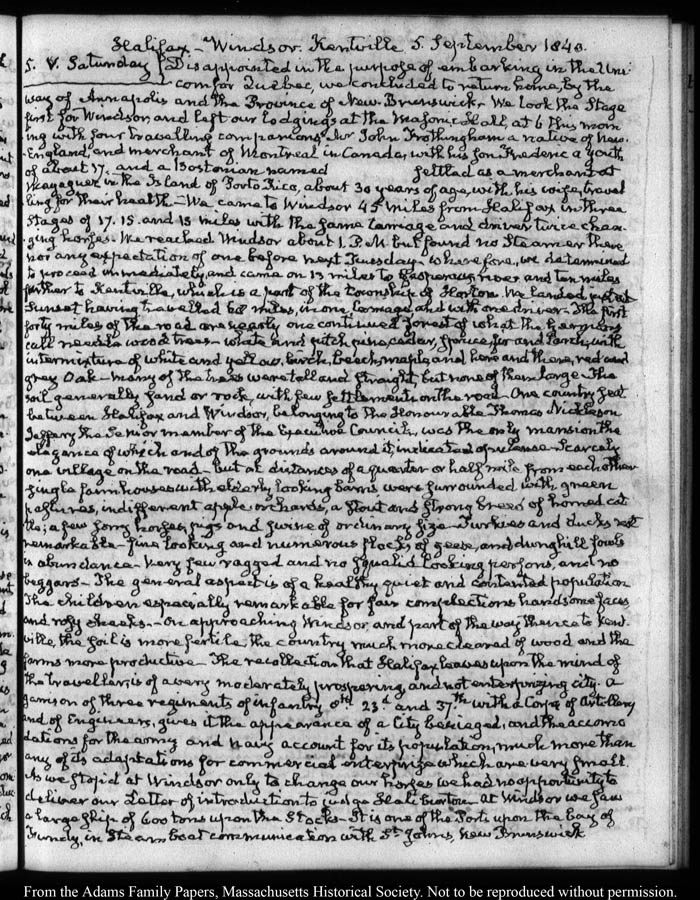 Halifax – Windsor. Kentville 5. September 1840.
5. V. Saturday Disappointed in the purpose of embarking in the Uni
corn for Quebec, we concluded to return home, by the
way of Annapolis and the Province of New. Brunswick. We took the Stage
first for Windsor, and left our lodgings at the Masonic Hall, at 6 this morn
ing with four travelling companions. Mr John Frothingham a native of New.
England, and merchant of Montreal in Canada, with his son Frederic a youth
of about 17. and a Bostonian named settled as a merchant at
Mayaguez in the Island of Porto Rico, about 30 years of age, with his wife, travel
ling for their health – We came to Windsor 45 miles from Halifax in three
Stages of 17. 15. and 13 miles with the same Carriage and driver twice chan
ging horses. We reached Windsor about 1. P.M. but found no Steamer there
nor any expectation of one before next Tuesday – wherefore, we determined
to proceed immediately, and came on 13 miles to Gaspereau river and ten miles
further to Kentville, which is a part of the township of Horton. We landed just at
Sunset having travelled 68 miles, in one carriage and with one driver – The first
forty miles of the road are nearly one continued forest of what the Germans
call needle wood trees – white and pitch pine, cedar, spruce, fir and larch, with
intermixture of white and yellow, birch, beech, maple, and here and there, red and
grey Oak – many of the trees were tall and straight, but none of them large – The
soil generally sand or rock, with few settlements on the road – One country seat
between Halifax and Windsor, belonging to the Honourable Thomas Nickleson
Jeffery the Senior member of the Executive Council, was the only mansion the
elegance of which and of the grounds around it, indicated opulence – Scarcely
one village on the road – but at distances of a quarter or half mile from each other
single farm houses with elderly looking barns were surrounded with green
pastures, indifferent apple orchards, a stout and strong breed of horned cat
tle; a few sorry horses, pigs and swine of ordinary size – Turkies and ducks not
remarkable – fine looking and numerous flocks of geese, and dunghill fowls
in abundance – Very few ragged and no squalid looking persons, and no
beggars – The general aspect is of a healthy quiet and contented population
The children especially remarkable for fair complections handsome faces
and rosy cheeks – On approaching Windsor, and part of the way thence to Kent
ville, the soil is more fertile, the country much more cleared of wood and the
farms more productive – The recollection that Halifax leaves upon the mind of
the traveller, is of a very moderately prospering, and not enterprizing city. A
garrison of three regiments of infantry 8th 23d. and 37.th with a Corps of Artillery
and of Engineers, gives it the appearance of a City besieged, and the accomo
dations for the army and navy account for its population, much more than
any of its adaptations for commercial enterprize which are very small.
As we stop'd at Windsor only to change our horses we had no opportunity to
deliver our Letter of introduction to judge Haliburton – At Windsor we saw
a large ship of 600 tons upon the Stocks – It is one of the Ports upon the bay of
Fundy, in Steam boat communication with St. Johns, New Brunswick
From the Adams Family Papers, Massachusetts Historical Society. Not to be reproduced without permission.